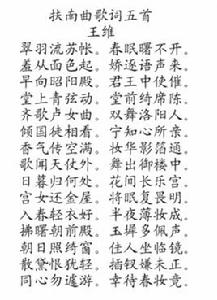 扶南曲歌词五首
王维
翠羽流苏帐。春眠曙不开。
羞从面色起。娇逐语声来。
早向昭阳殿。君王中使催。
堂上青弦动。堂前绮席陈。
齐歌卢女曲。双舞洛阳人。
倾国徒相看。宁知心所亲。
香气传空满。妆华影箔通。
歌闻天仗外。舞出御楼中。
日暮归何处。花间长乐宫。
宫女还金屋。将眠复畏明。
入春轻衣好。半夜薄妆成。
拂曙朝前殿。玉墀多佩声。
朝日照绮窗。佳人坐临镜。
散黛恨犹轻。插钗嫌未正。
同心勿遽游。幸待春妆竟。